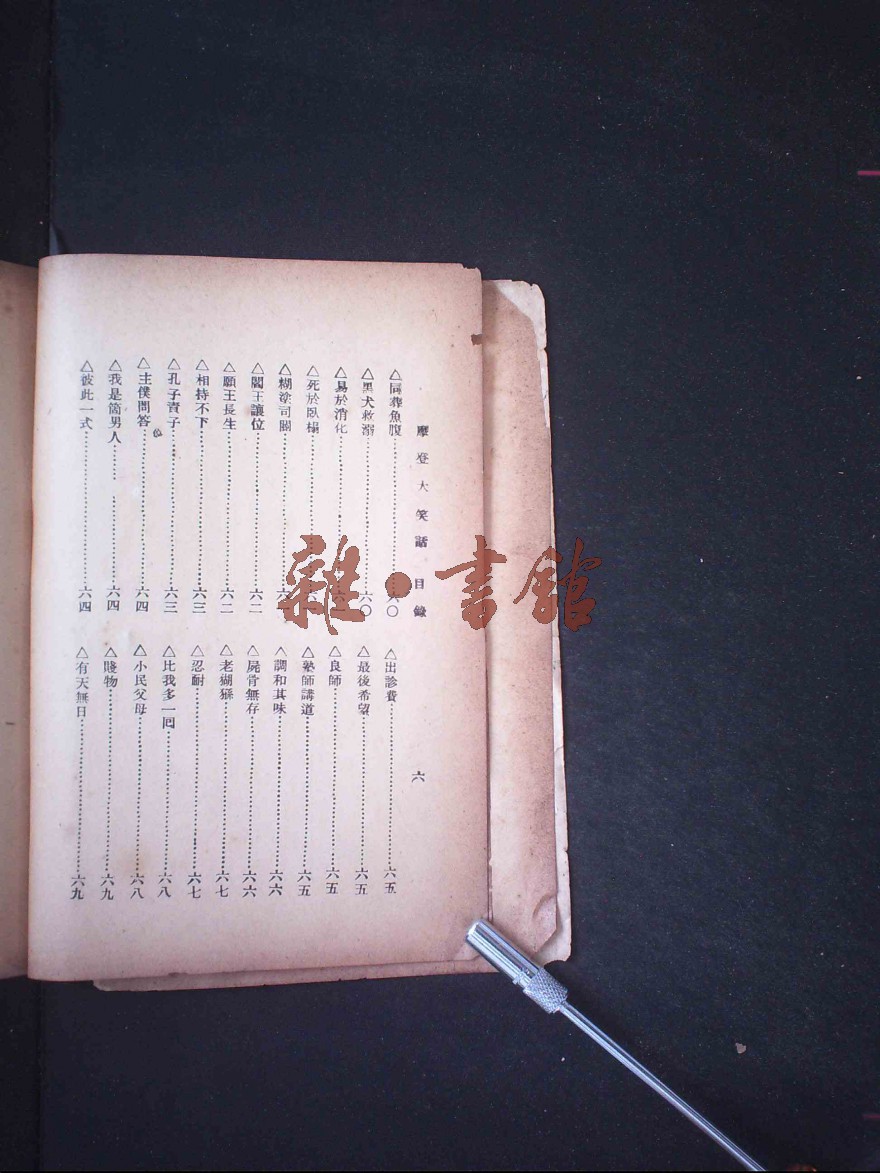 摩登大笑話 目錄 六
△同葬魚腹 六〇
△黑犬救溺 六〇
△易於消化 六
△死於臥榻
△糊塗司閽 六
△閻王讓位 六二
△願王長生 六二
△相持不下 六三
△孔子責子 六三
△主僕問答 六四
△我是箇男人 六四
△彼此一式 六四
△出診費 六五
△最後希望 六五
△良師 六五
△塾師講道 六五
△調和其味 六六
△屍骨無存 六六
△老猢猻 六七
△忍耐 六七
△比我多一囘 六八
△小民父母 六八
△賤物 六九
△有天無日 六九
雜·書館